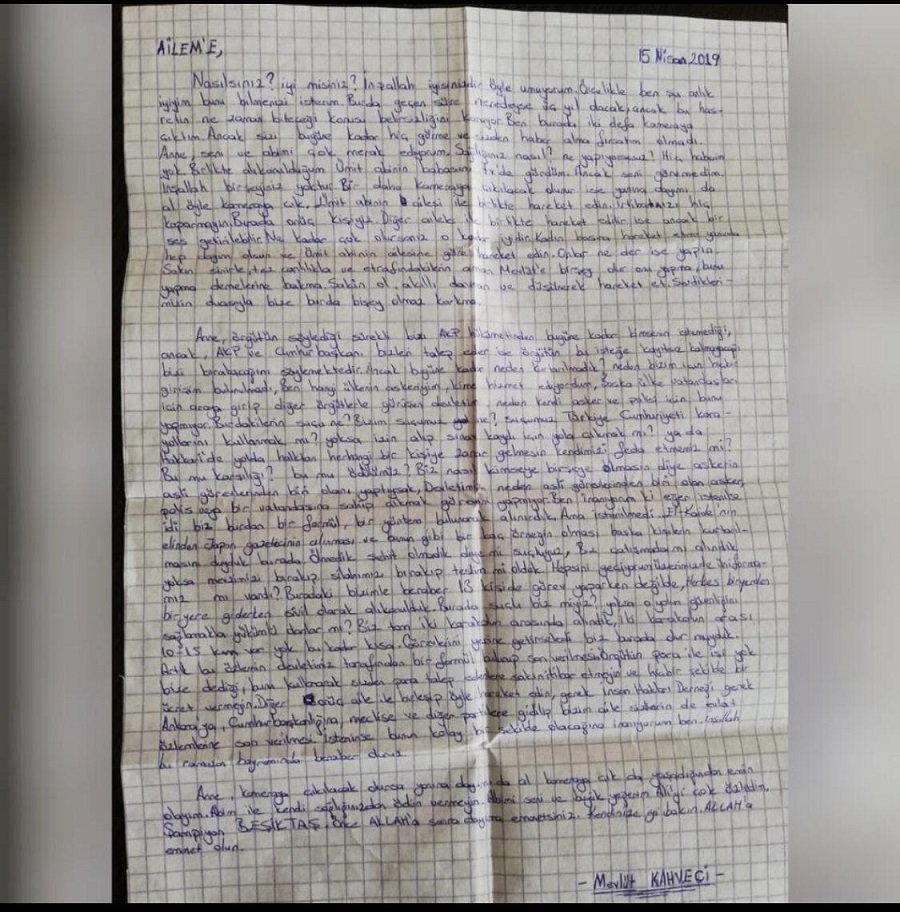 AİLEM'E,
15 Nisan 2019
Nasılsınız? iyi misiniz? İnşallah iyisinizdir öyle umuyorum. Öncelikle ben şu anlık
iyiyim bunu bilmenizi isterim. Burda geçen süre neredeyse üç yıl olacak, ancak bu has-
retin ne zaman biteceği konusu belirsizliğini koruyor. Ben burada iki defa kameraya
çıktım. Ancak sizi bugüne kadar hiç görme ve sizden haber alma fırsatım olmadı.
Anne, seni ve abimi çok merak ediyorum. Sağlığınız nasıl? ne yapıyorsunuz? Hiç haberim
yok. Birlikte alıkonulduğum Ümit abinin babasını tv'de gördüm. Ancak seni göremedim.
İnşallah bir şeyiniz yoktur. Bir daha kameraya çıkılacak olunur ise yanına dayımı da
al öyle kameraya çık. Ümit abinin ailesi ile birlikte hareket edin. İrtibatınızı hiç
koparmayın. Burada onüç kişiyiz. Diğer aileler ile birlikte hareket edilir ise ancak bir
ses getirilebilir. Ne kadar çok olursanız o kadar iyidir. Kadın başına hareket etme yanında
hep dayım olsun ve Ümit abinin ailesine göre hareket edin. Onlar ne der ise yapın.
Sakın sinirle, tez canlılıkla ve etrafındakilerin aman Mevlüt'e birşey olur onu yapma, bunu
yapma demelerine bakma. Sakin ol, akıllı davran ve düşünerek hareket et. Sevdikleri-
mizin duasıyla bize burda bişey olmaz korkma.
Anne, örgütün söylediği sürekli bizi AKP hükümetinden bugüne kadar kimsenin istemediği,
ancak, AKP ve Cumhurbaşkanı bizleri talep eder ise örgütün bu isteğe kayıtsız kalmayacağı
bizi bırakacağını söylemektedir. Ancak bugüne kadar neden kurtarılmadık? neden bizim için hiçbir
girişim bulunulmadı, Ben hangi ülkenin askeriyim, kime hizmet ediyordum, Başka ülke vatandaşları
için araya girip diğer örgütlerle görüşen devletim neden kendi asker ve polisi için bunu
yapmıyor. Burdakilerin suçu ne? Bizim suçumuz ne? Suçumuz Türkiye Cumhuriyeti kara-
yollarını kullanmak mı? yoksa izin alıp sınav kaydı için yola çıkmak mı? ya da
Hakkari'de yolda halktan herhangi bir kişiye zarar gelmesin kendimizi feda etmemiz mi?
Bu mu karşılığı? bu mu ödülümüz? Biz nasıl kimseye birşey olmasın diye askerin
asli görevlerinden biri olanı yaptıysak, Devletimiz neden asli görevlerinden biri olan asker,
polis veya bir vatandaşına sahip çıkmak görevini yapmıyor. Ben inanıyorum ki eğer istenilse
idi biz burdan bir formül, bir yöntem bulunarak alınırdık. Ama istenilmedi. El-Kaide'nin
elinden Japon gazetecinin alınması ve bunun gibi bir kaç örneğin olması başka kişilerin kurtarıl-
masını duyduk burada. Ölmedik şehit olmadık diye mi suçluyuz, Biz çalışmada mı alındık
yoksa mevzimizi bırakıp silahımızı bırakıp teslim mi olduk. Hepsini geçiyorum üzerimizde üniforma-
mız mı vardı? Buradaki bizimle beraber 13 kişide görev yaparken değilde, Herkes bir yerden
bir yere giderken sivil olarak alıkonulduk. Burada suçlu biz miyiz? yoksa o yolun güvenliğini
sağlamakla yükümlü olanlar mı? Biz tam iki karakolun arasında alındık, iki karakolun arası
10-15 km var yok bu kadar kısa. Görevlerini yerine getirselerdi biz burada olur muyduk.
Artık bu özlemin devletimiz tarafından bir formül bulunup son verilmesi. Örgütün para ile işi yok
bize dediği, bunu kullanarak sizden para talep edenlere sakın itibar etmeyin ve hiçbir şekilde bir
ücret vermeyin. Diğer onüç aile ile birleşip öyle hareket edin, gerek İnsan Hakları Derneği gerek
Ankara'ya, Cumhurbaşkanlığına, meclise ve diğer partilere gidilip bizim aile sizlerin de evlat
özlemlerine son verilmesi istenirse bunun kolay bir şekilde olacağına inanıyorum ben. İnşallah
bu ramazan bayramında beraber oluruz.
Anne, kameraya çıkılacak olursa yanına dayımı da al kameraya çık da yaşadığından emin
olayım. Abim ile kendi sağlığınızdan ödün vermeyin. Abimi seni ve küçük yeğenim Ali'yi çok özledim.
Şampiyon BEŞİKTAŞ. Önce ALLAH'a sonra dayıma emanetsiniz. Kendinize iyi bakın. ALLAH'a
emanet olun.
- Mevlüt KAHVECİ -